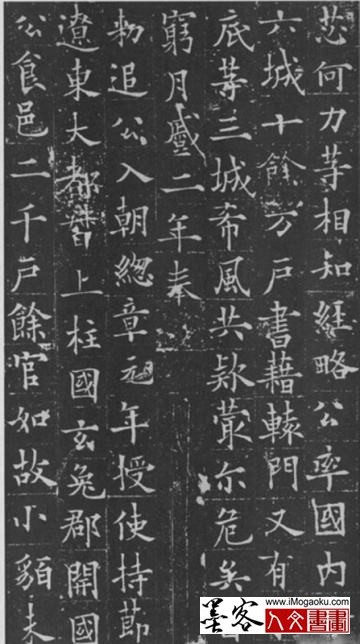 苾何力等相知經略公率國內
六城十餘万戶書藉轅門又有
底等三城希風共欵蕞尒危矣
窮月蹙二年奉
勑追公入朝總章元年授使持節
遼東大都督上柱國玄菟郡開國
公食邑二千戶餘官如故小貊未
www.iMogaoku.com
墨客 人文書畫